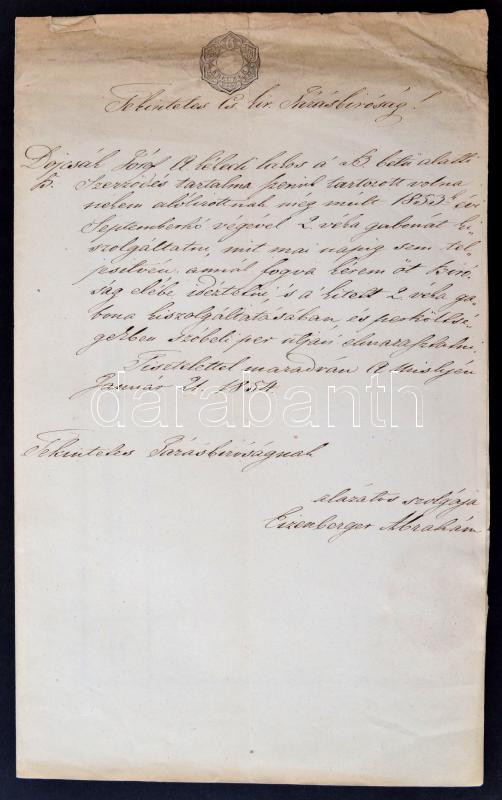 Tekintetes Cs. kir. Járásbiróság!
Dojcsák Jósef A. lakos a' B betü alatti
Szerződés tartalma szerint tartozott volna
nekem alólirottnak meg mult 1853ik évi
Septemberhó végével 2. véka gabonát ki
szolgáltatni, mit mai napig sem tel„
jesitvén annál fogva kérem őt biró
ság elébe idéztetni, s a' kitett 2. véka ga„
bona kiszolgáltatásában és perköltsé„
gekben szóbeli per utján elmarasztalni.
Tisztelettel maradván A. Mislyén
Januar 21. 1854.
Tekintetes Járásbiróságnak
alázatos szolgája
Eizenberger Abrahám
darabanth